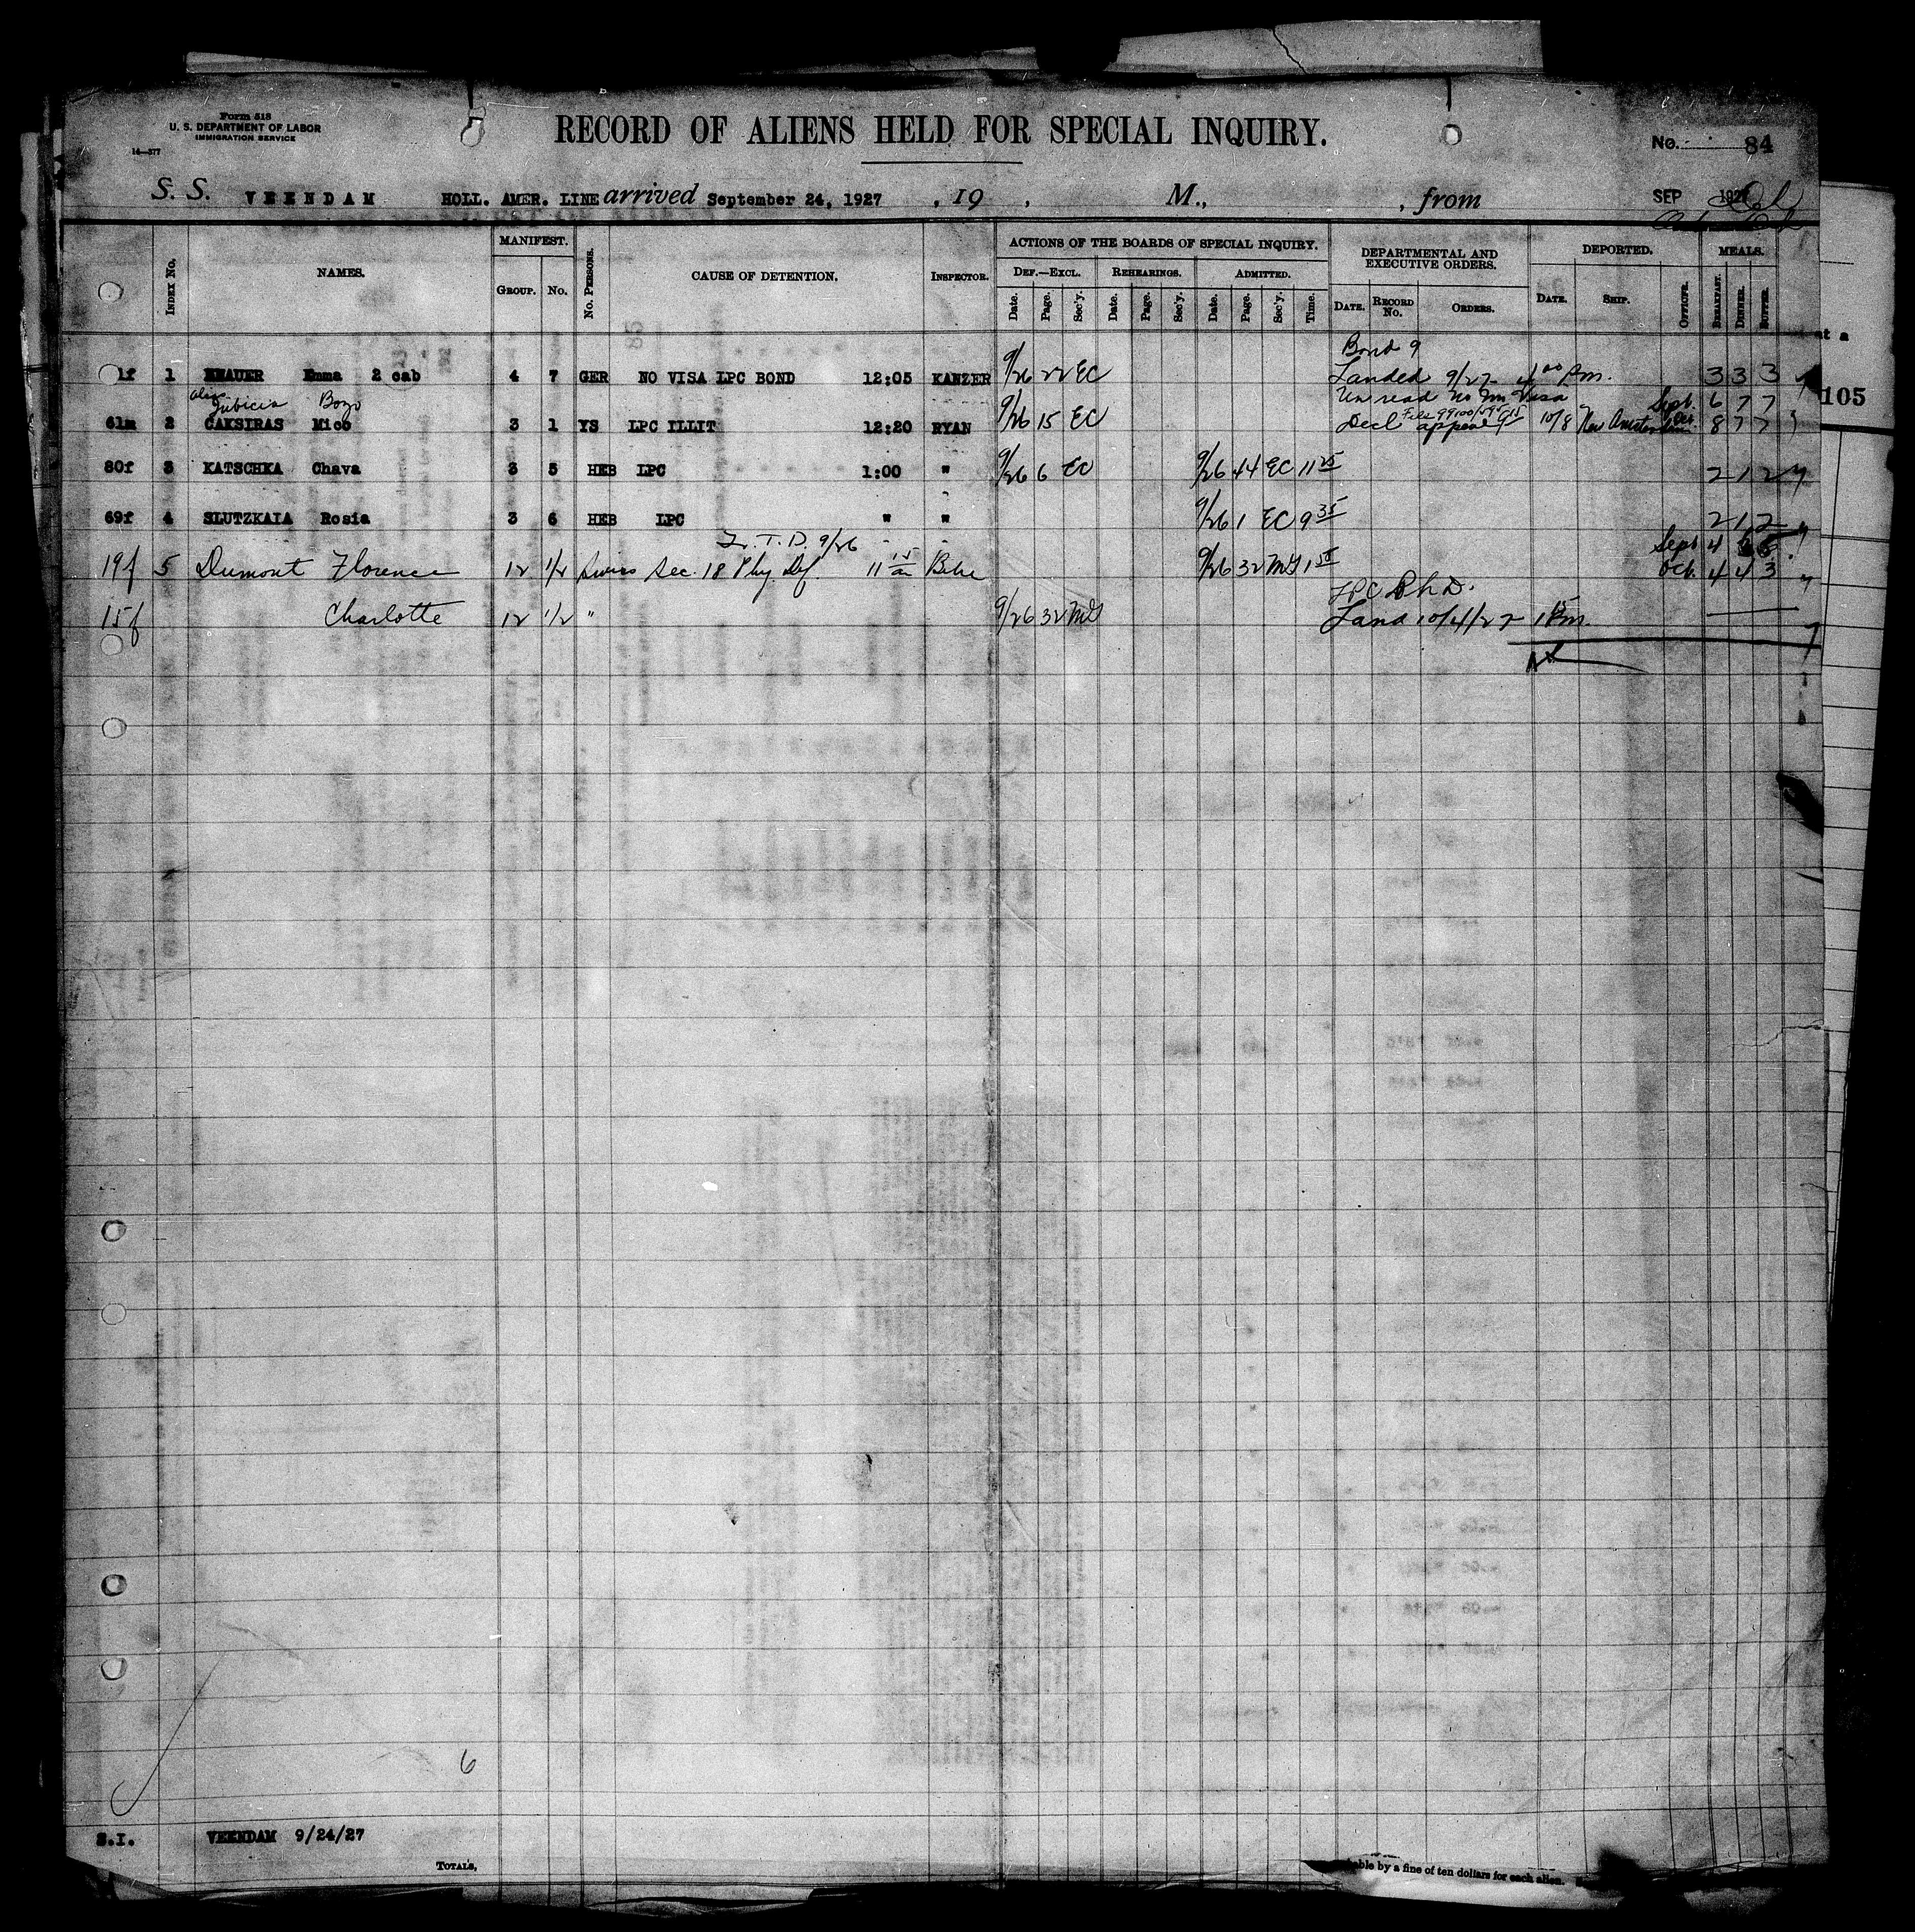 Form 518
U. S. DEPARTMENT OF LABOR
IMMIGRATION SERVICE
14—577
RECORD OF ALIENS HELD FOR SPECIAL INQUIRY.
No. 84
S. S. VEENDAM HOLL. AMER. LINE arrived September 24, 1927 , 19 , M., , from SEP 1927
INDEX No. NAMES. MANIFEST. GROUP. No. No. PERSONS. CAUSE OF DETENTION. INSPECTOR. ACTIONS OF THE BOARDS OF SPECIAL INQUIRY. DEPARTMENTAL AND EXECUTIVE ORDERS. DEPORTED. MEALS.
DEF.—EXCL. REHEARINGS. ADMITTED.
Date. Page. Sec'y. Date. Page. Sec'y. Date. Page. Sec'y. Time. DATE. RECORD No. ORDERS. DATE. SHIP. OFFICER. BREAKFAST. DINNER. SUPPER.
at a
Bond 9
1f 1 Emma 2 cab 4 7 GER NO VISA LPC BOND 12:05 KANZER 9/26 22 EC Landed 9/27 4 00 Pm. 3 3 3
105
alias Jubicia Bozo Un read no Im Visa Sept 6 7 7
61m 2 CAKSIRAS Mico 3 1 YS LPC ILLIT 12:20 RYAN 9/26 15 EC Decl appeal 10/8 New Amsterdam Oct. 8 7 7
80f 3 KATSCHKA Chava 3 5 HEB LPC 1:00 " 9/26 6 EC 9/26 44 EC 11 25 2 1 2
69f 4 SLUTZKAIA Rosia 3 6 HEB LPC " " 9/26 1 EC 9 35 2 1 2
T. D. 9/26 Sept 4
19f 5 Dumont Florence 12 1/2 Swiss Sec. 18 Phy. Def. 11 15 9/26 32 Oct. 4 4 3
LPC Ph D.
15f Charlotte 12 1/2 " 9/26 32 Land 10/4/27 1 15 Pm.
6
S.I. VEENDAM 9/24/27
TOTALS,
able by a fine of ten dollars for each alien.